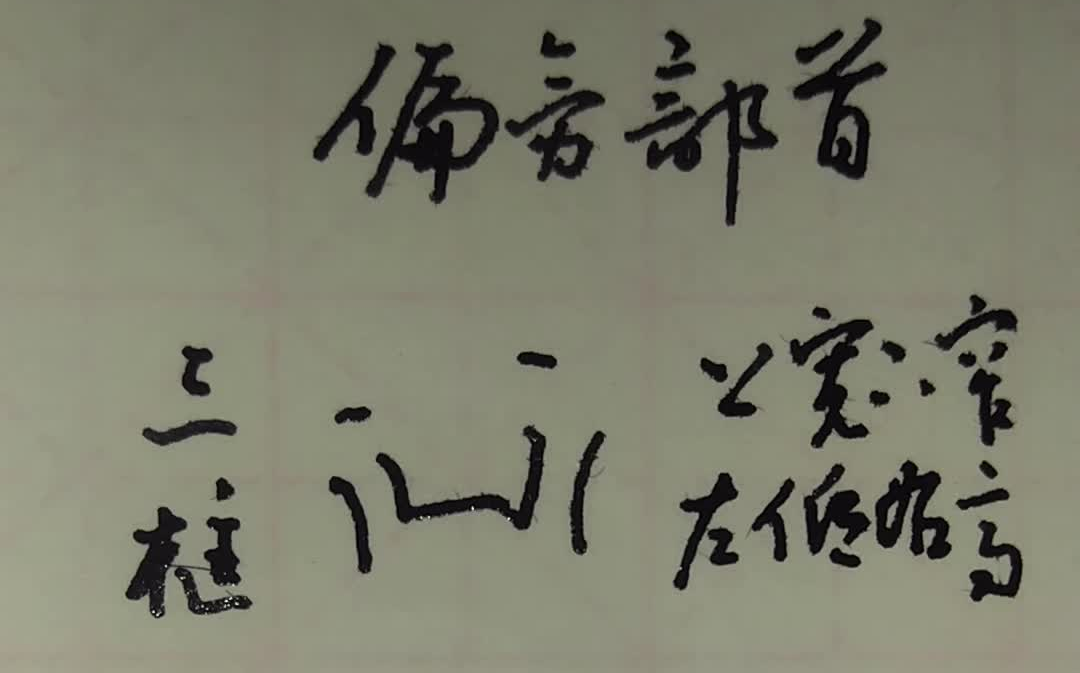 偏旁部首
三框
上宽下窄
左低右高